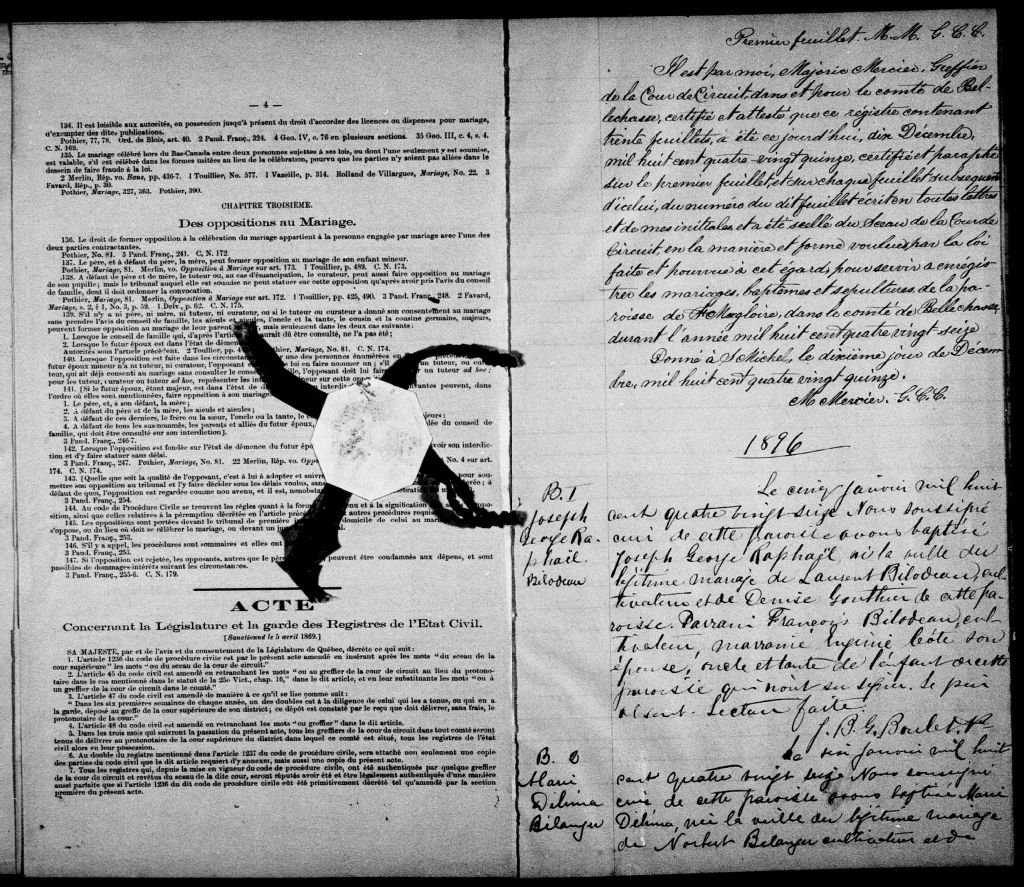 — 4 —
134. Il est loisible aux autorités, en possession jusqu'à présent du droit d'accorder des licences ou dispenses pour mariage,
d'exempter des dites publications.
Pothier, 77, 78. Ord. de Blois, art. 40. 2 Pand. Franç., 324. 4 Geo. IV, c. 76 en plusieurs sections. 35 Geo. III, c. 4, s. 4.
C. N. 169.
135. Le mariage célébré hors du Bas-Canada entre deux personnes sujettes à ses lois, ou dont l'une seulement y est soumise,
est valable, s'il est célébré dans les formes usitées au lieu de la célébration, pourvu que les parties n'y soient pas allées dans le
dessein de faire fraude à la loi.
2 Merlin, Rép. vo. Bans, pp. 436-7. 1 Touillier, No. 577. 1 Vazeille, p. 314. Rolland de Villargues, Mariage, No. 22. 3
Favard, Rép., p. 30.
Pothier, Mariage, 327, 363. Pothier, 390.
CHAPITRE TROISIEME.
Des oppositions au Mariage.
136. Le droit de former opposition à la célébration du mariage appartient à la personne engagée par mariage avec l'une des
deux parties contractantes.
Pothier, No. 81. 3 Pand. Franç., 241. C. N. 172.
137. Le père, et à défaut du père, la mère, peut former opposition au mariage de son enfant mineur.
Pothier, Mariage, 81. Merlin, vo. Opposition à Mariage sur art. 173. 1 Touillier, p. 489. C. N. 173.
138. A défaut de père et de mère, le tuteur ou, au cas d'émancipation, le curateur, peut aussi faire opposition au mariage
de son pupille; mais le tribunal auquel elle est soumise ne peut statuer sur cette opposition qu'après avoir pris l'avis du conseil
de famille, dont il doit ordonner la convocation.
Pothier, Mariage, 81. Merlin, Opposition à Mariage sur art. 172. 1 Touillier, pp. 425, 490. 3 Pand. Franç., 248. 2 Favard,
Mariage, s. 2, § 1, No. 3, p. 59. 1 Delv., p. 62. C. N. 175.
139. S'il n'y a ni père, ni mère, ni tuteur, ni curateur, ou si le tuteur ou curateur a donné son consentement au mariage
sans prendre l'avis du conseil de famille, les aïeuls et aïeules, l'oncle et la tante, le cousin et la cousine germains, majeurs,
peuvent former opposition au mariage de leur parent mais seulement dans les deux cas suivants:
1. Lorsque le conseil de famille qui, d'après l'article aurait dû être consulté, ne l'a pas été;
2. Lorsque le futur époux est dans l'état de démence
Autorités sous l'article précédent. 2 Toullier, pp. Mariage, No. 81. C. N. 174.
140. Lorsque l'opposition est faite dans les circonstances une des personnes énumérées en
futur époux mineur n'a ni tuteur, ni curateur, l'opposant lui en faire nommer un; s'il un tuteur, ou
teur, qui ait déjà consenti au mariage sans consulter le conseil l'opposant doit lui faire tuteur ad hoc;
pour les tuteur, curateur ou tuteur ad hoc, représenter les mineur sur cette
141. [Si le futur époux, étant majeur, est dans l'état d'interdiction peuvent, dans
l'ordre où elles sont mentionnées, faire opposition à son mariage
1. Le père, et, à son défaut, la mère;
2. A défaut du père et de la mère, les aïeuls et aïeules;
3. A défaut de ces derniers, le frère ou la sœur, l'oncle ou la tante, le
4. A défaut de tous les sus-nommés, les parents et alliés du futur époux, conseil de
famille, qui doit être consulté sur son interdiction].
3 Pand. Franç., 246-7.
142. Lorsque l'opposition est fondée sur l'état de démence du futur époux voir son interdic-
tion et d'y faire statuer sans délai.
3 Pand. Franç., 247. Pothier, Mariage, No. 81. 22 Merlin, Rép. vo. No. 4 sur art.
174. C. N. 174.
143. [Quelle que soit la qualité de l'opposant, c'est à lui à adopter et suivre pour sou-
mettre son opposition au tribunal et l'y faire décider sous les délais voulus, sans
défaut de quoi, l'opposition est regardée comme non avenue, et il est, nonobstant célébration
3 Pand. Franç., 254.
144. Au code de Procédure Civile se trouvent les règles quant à la forme et à la signification
sition, ainsi que celles relatives à la péremption décrétée en l'article autres procédures
145. Les oppositions sont portées devant le tribunal de première domicile de celui au mariage
s'oppose, ou du lieu où doit se célébrer le mariage, ou devant un
3 Pand. Franç., 253.
146. S'il y a appel, les procédures sont sommaires et elles ont
3 Pand. Franç., 253.
147. Si l'opposition est rejetée, les opposants, autres que le père peuvent être condamnés aux dépens, et sont
passibles de dommages-intérêts suivant les circonstances.
3 Pand. Franç., 255-6. C. N. 179.
ACTE
Concernant la Législature et la garde des Registres de l'Etat Civil.
[Sanctionné le 5 avril 1869.]
SA MAJESTE, par et de l'avis et du consentement de la Législature de Québec, décrète ce qui suit:
1. L'article 1236 du code de procédure civile est par le présent acte amendé en insérant après les mots "du sceau de la
cour supérieure" les mots "ou du sceau de la cour de circuit."
2. L'article 45 du code civil est amendé en retranchant les mots "ou au greffier de la cour au lieu du protono-
taire dans le cas mentionné dans le statut de la 25e Vict., chap. 16," dans le dit article, et en leur substituant les mots "ou à
un greffier de la cour de circuit dans le comté."
3. L'article 47 du code civil est amendé de manière à ce qu'il se lise comme suit:
"Dans les six premières semaines de chaque année, un des doubles est à la diligence de celui qui les a tenus, ou qui en a
la garde, déposé au greffe de la cour supérieure de son district, ce dépôt est constaté par le reçu que doit délivrer, sans frais, le
protonotaire de la cour."
4. L'article 48 du code civil est amendé en retranchant les mots "ou greffier" dans le dit article.
5. Dans les trois mois qui suivront la passation du présent acte, tous les greffiers de la cour de circuit dans tout comté seront
tenus de délivrer au protonotaire de la cour supérieure du district dans lequel ce comté est situé, tous les registres de l'état
civil alors en leur possession.
6. Au double du registre mentionné dans l'article 1237 du code de procédure civile, sera attaché non seulement une copie
des parties du code civil que le dit article requiert d'y annexer, mais aussi une copie du présent acte.
7. Tous les registres qui, depuis la mise en vigueur du code de procédure civile, ont été authentiqués par quelque greffier
de la cour de circuit et revêtus du sceau de la dite cour, seront réputés avoir été et être légalement authentiqués d'une manière
aussi parfaite que si l'article 1236 du dit code de procédure civile eût été primitivement décrété tel qu'amendé par la section
première du présent acte.
Premier feuillet. M. M. G. C. C.
Il est par moi, Majoric Mercier, Greffier
de la Cour de Circuit, dans et pour le comté de Bel-
lechasse, certifié et attesté que ce régistre contenant
trente feuillets, a été ce jourd'hui, dix Décembre,
mil huit cent quatre-vingt quinze, certifié et paraphé
sur le premier feuillet et sur chaque feuillet subsequent
d'icelui, du numéro du dit feuillet écrit en toutes lettres
et de mes initiales et a été scellé du Sceau de la Cour de
Circuit, en la manière et forme voulues par la loi
faite et pourvue à cet égard, pour servir a enrégis-
trer les mariages, baptêmes et sépultures, de la pa-
roisse de St Magloire, dans le comté de Bellechasse,
durant l'année mil huit cent quatre vingt seize
Donné à St Michel, le dixième jour de Décem-
bre, mil huit cent quatre vingt quinze.
M Mercier. G.C.C.
1896
B. 1
Joseph
George Ra-
phaël
Bilodeau
Le cinq Janvier mil huit
cent quatre vingt seize Nous soussigné
curé de cette paroisse avons baptisé
Joseph George Raphaël né la veille du
légitime mariage de Laurent Bilodeau, cul-
tivateur et de Denise Gonthier de cette pa-
roisse. Parrain François Bilodeau, cul-
tivateur, marraine Euginie Coté son
épouse, oncle et tante de l'enfant de cette
paroisse qui n'ont su signer. Le père
absent. Lecture faite.
J. B. G. Boulet. Ptre
B. 2
Marie
Délima
Bélanger
Le six Janvier mil huit
cent quatre vingt seize Nous soussigné
curé de cette paroisse avons baptisé Marie
Délima, née la veille du légitime mariage
de Norbert Belanger cultivateur et de